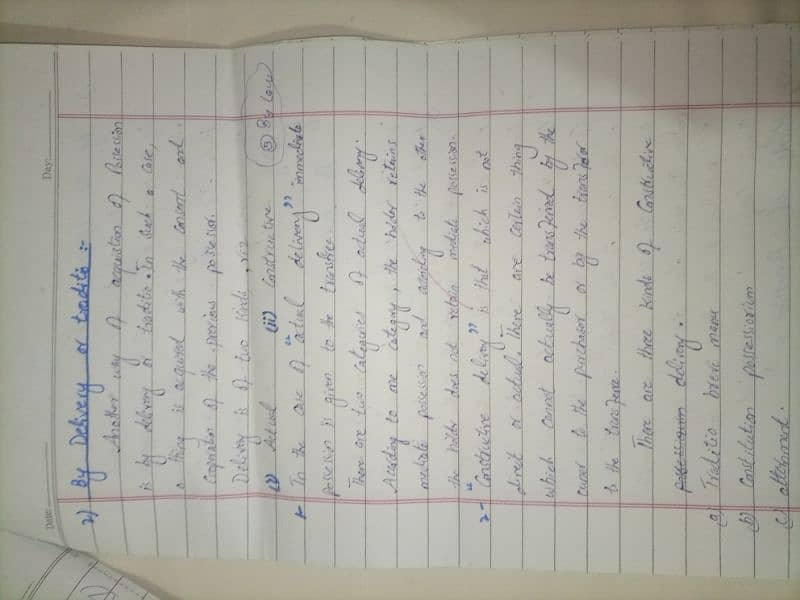 Date:
Day:
2) By Delivery or traditio :-
Another way of acquisition of Possession
is by delivery or traditio. In such a case,
a thing is acquired with the consent and
Cooperation of the previous possessor.
Delivery is of two kinds, viz
(i) Actual (ii) Constructive (3) By law
1- In the case of "actual delivery" immediate
possession is given to the transferee.
There are two categories of actual delivery.
According to one category, the holder retains
mediate possession and according to the other
the holder does not retain mediate possession.
2- "Constructive delivery" is that which is not
direct or actual. There are certain thing
which cannot actually be transferred by the
owner to the purchaser or by the
to the
There are three kinds of Constructive
possession delivery.
a) Traditio brevi manu
b) Constitutum possessorium
c) attornment.